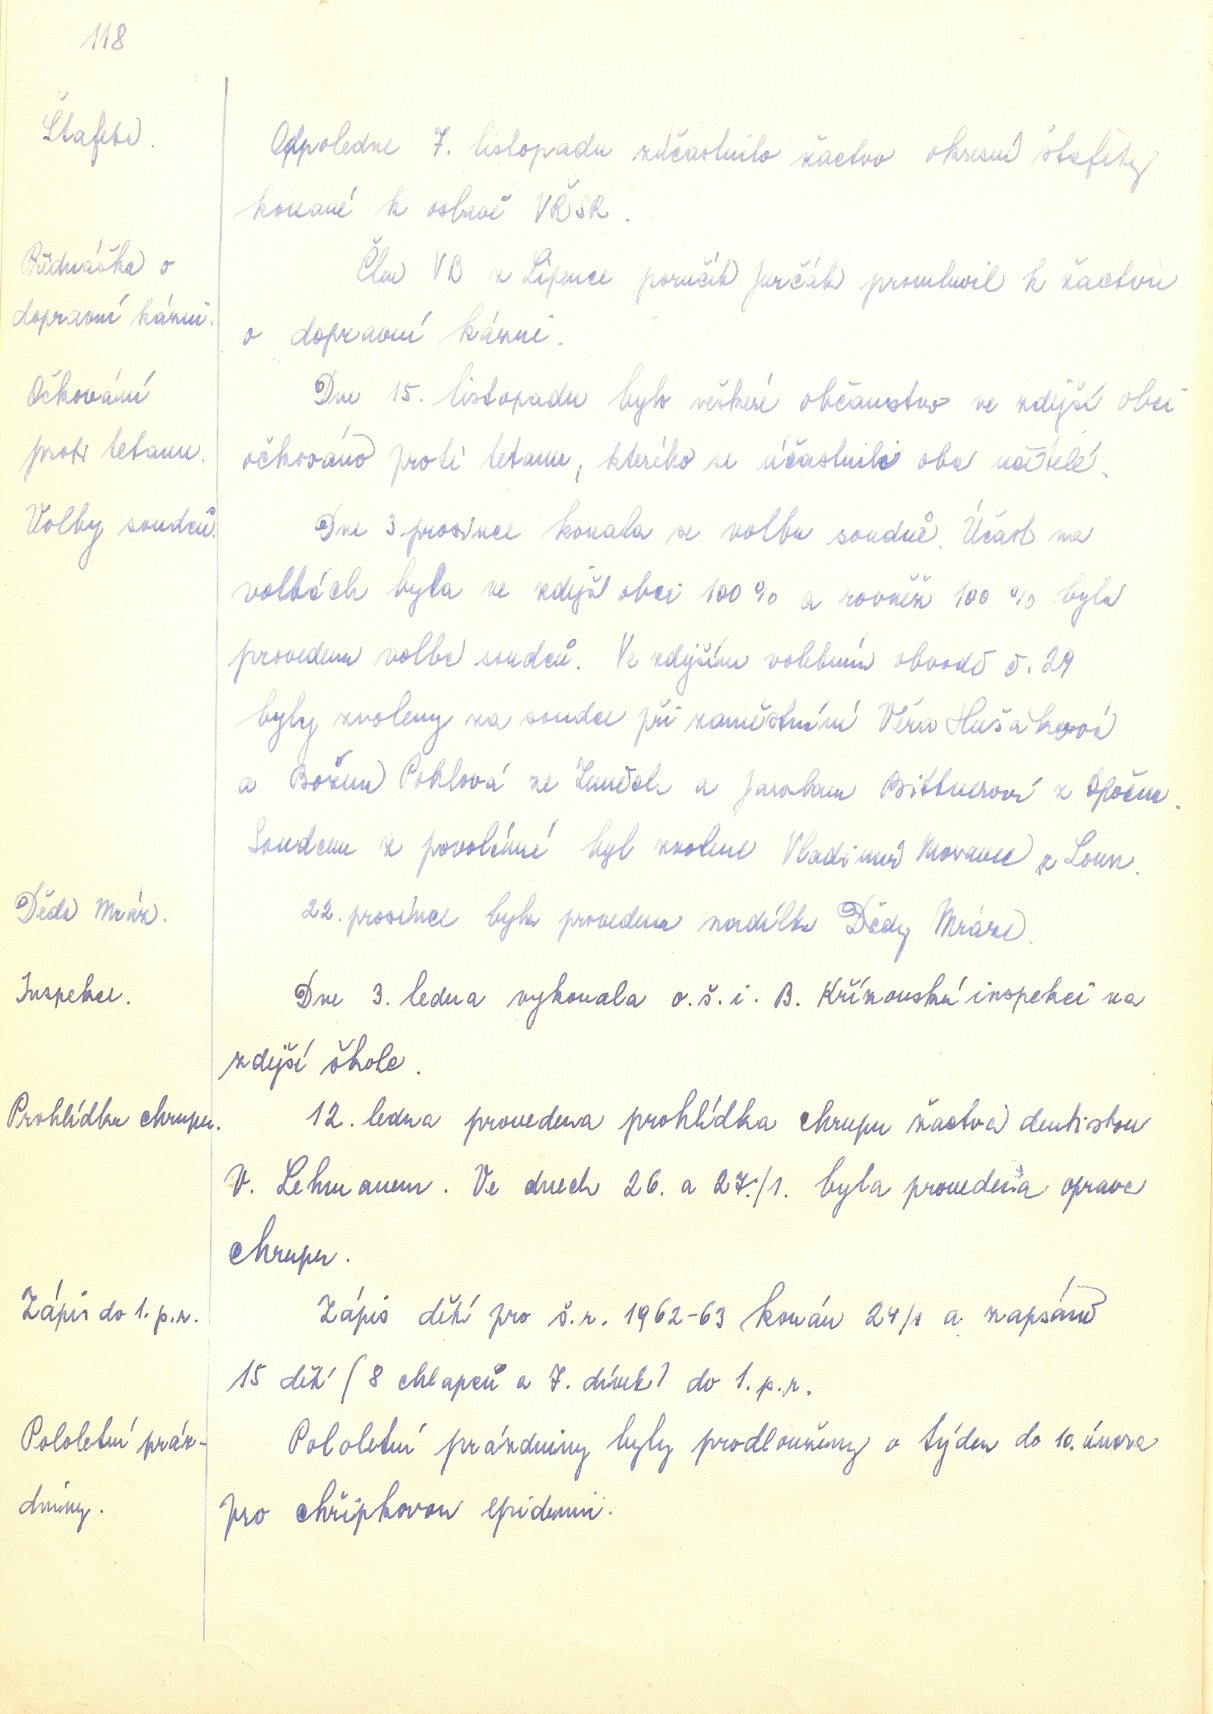 118
Štafeta.
Odpoledne 7. listopadu zúčastnilo žactvo okresní štafety
konané k oslavě VŘSR.
Přednáška o
dopravní kázni.
Člen VB z Lipence poručík Jurčák promluvil k žactvu
o dopravní kázni.
Očkování
proti tetanu.
Dne 15. listopadu bylo veškeré občanstvo ve zdejší obci
očkováno proti tetanu, kterého se účastnili oba učitelé.
Volby soudců.
Dne 3. prosince konala se volba soudců. Účast na
volbách byla ve zdejší obci 100 % a rovněž 100 % byla
provedena volba soudců. Ve zdejším volebním obvodě č. 29
byly zvoleny za soudce při zaměstnání Věra Husáková
a Božena Pohlová ze Smolnice a Jaroslava Bittnerová z Opočna.
Soudcem z povolání byl zvolen Vladimír Moravec z Loun.
Děda Mráz.
22. prosince byla provedena nadílka Dědy Mráze.
Inspekce.
Dne 3. ledna vykonala o.š.i. B. Křížovská inspekci na
zdejší škole.
Prohlídka chrupu.
12. ledna provedena prohlídka chrupu žactva dentistou
V. Lehmanem. Ve dnech 26. a 27./1. byla provedena oprava
chrupu.
Zápis do 1.p.r.
Zápis dětí pro š.r. 1962-63 konán 24/1 a zapsáno
15 dětí (8 chlapců a 7. dívek) do 1.p.r.
Pololetní práz-
dniny.
Pololetní prázdniny byly prodlouženy o týden do 10. února
pro chřipkovou epidemii.